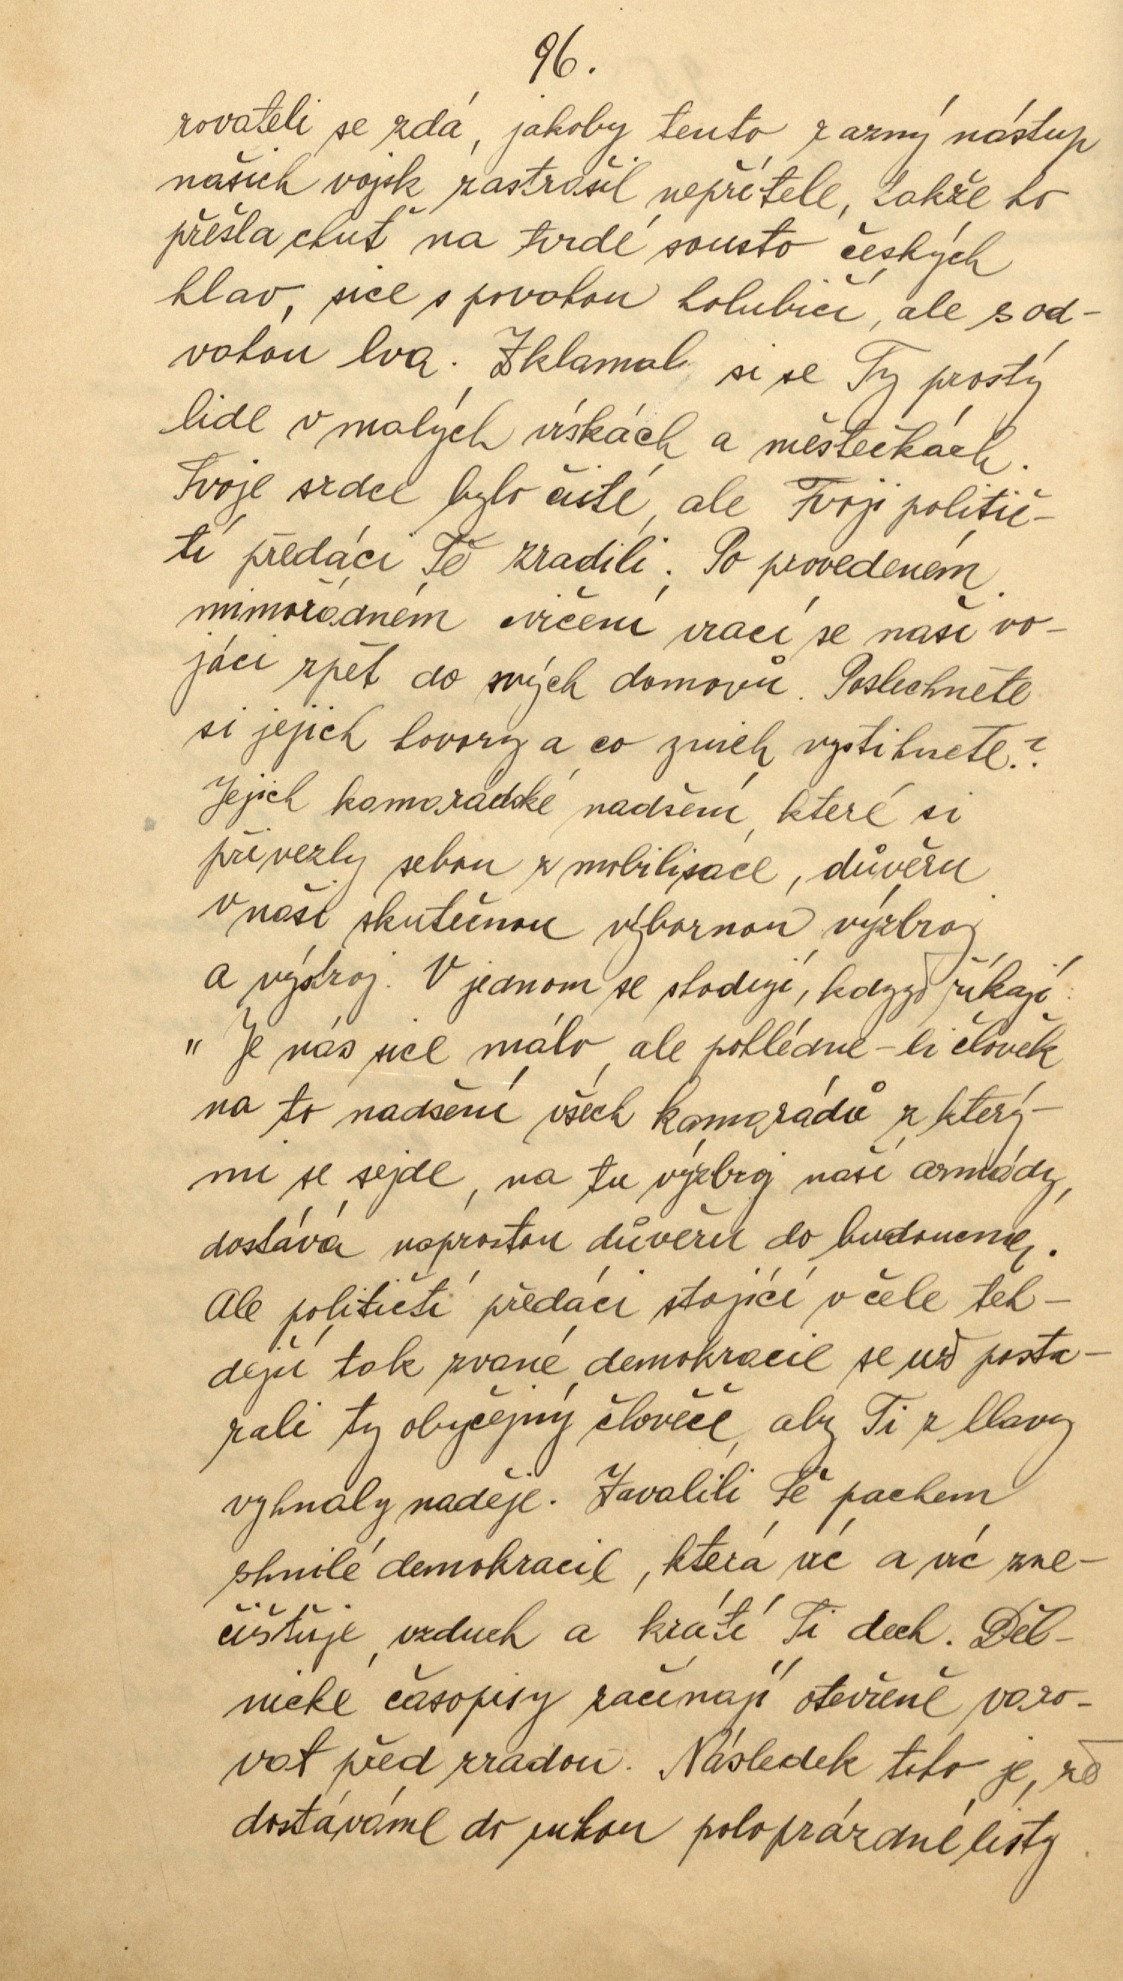 96.
rovateli se zdá, jakoby tento razný nástup
našich vojsk zastrašil nepřítele, takže ho
přešla chuť na tvrdé sousto českých
hlav, sice s povahou holubičí, ale s od-
vahou lva. Zklamal si se Ty prostý
lide v malých vískách a městečkách.
Tvoje srdce bylo čisté, ale Tvoji politič-
tí předáci Tě zradili. Po provedeném
mimořádném cvičení vrací se naši vo-
jáci zpět do svých domovů. Poslechněte
si jejich hovory a co z nich vystihnete.?
Jejich kamarádské nadšení, které si
přivezly sebou z mobilisace, důvěru
v naší skutečnou výbornou výzbroj
a výstroj. V jednom se shodují, když říkají:
" Je nás sice málo, ale pohlédne-li člověk
na to nadšení všech kamarádů z který-
mi se sejde, na tu výzbroj naší armády,
dostává naprostou důvěru do budoucna.
Ale političtí předáci stojící v čele teh-
dejší tak zvané demokracie se už posta-
rali ty obyčejný člověče, aby Ti z hlavy
vyhnaly naděje. Zavalili Tě pachem
shnilé demokracie, která víc a víc zne-
čišťuje vzduch a krátí Ti dech. Děl-
nické časopisy začínají otevřeně varo-
vat před zradou. Následek toho je, že
dostáváme do rukou poloprázdné listy